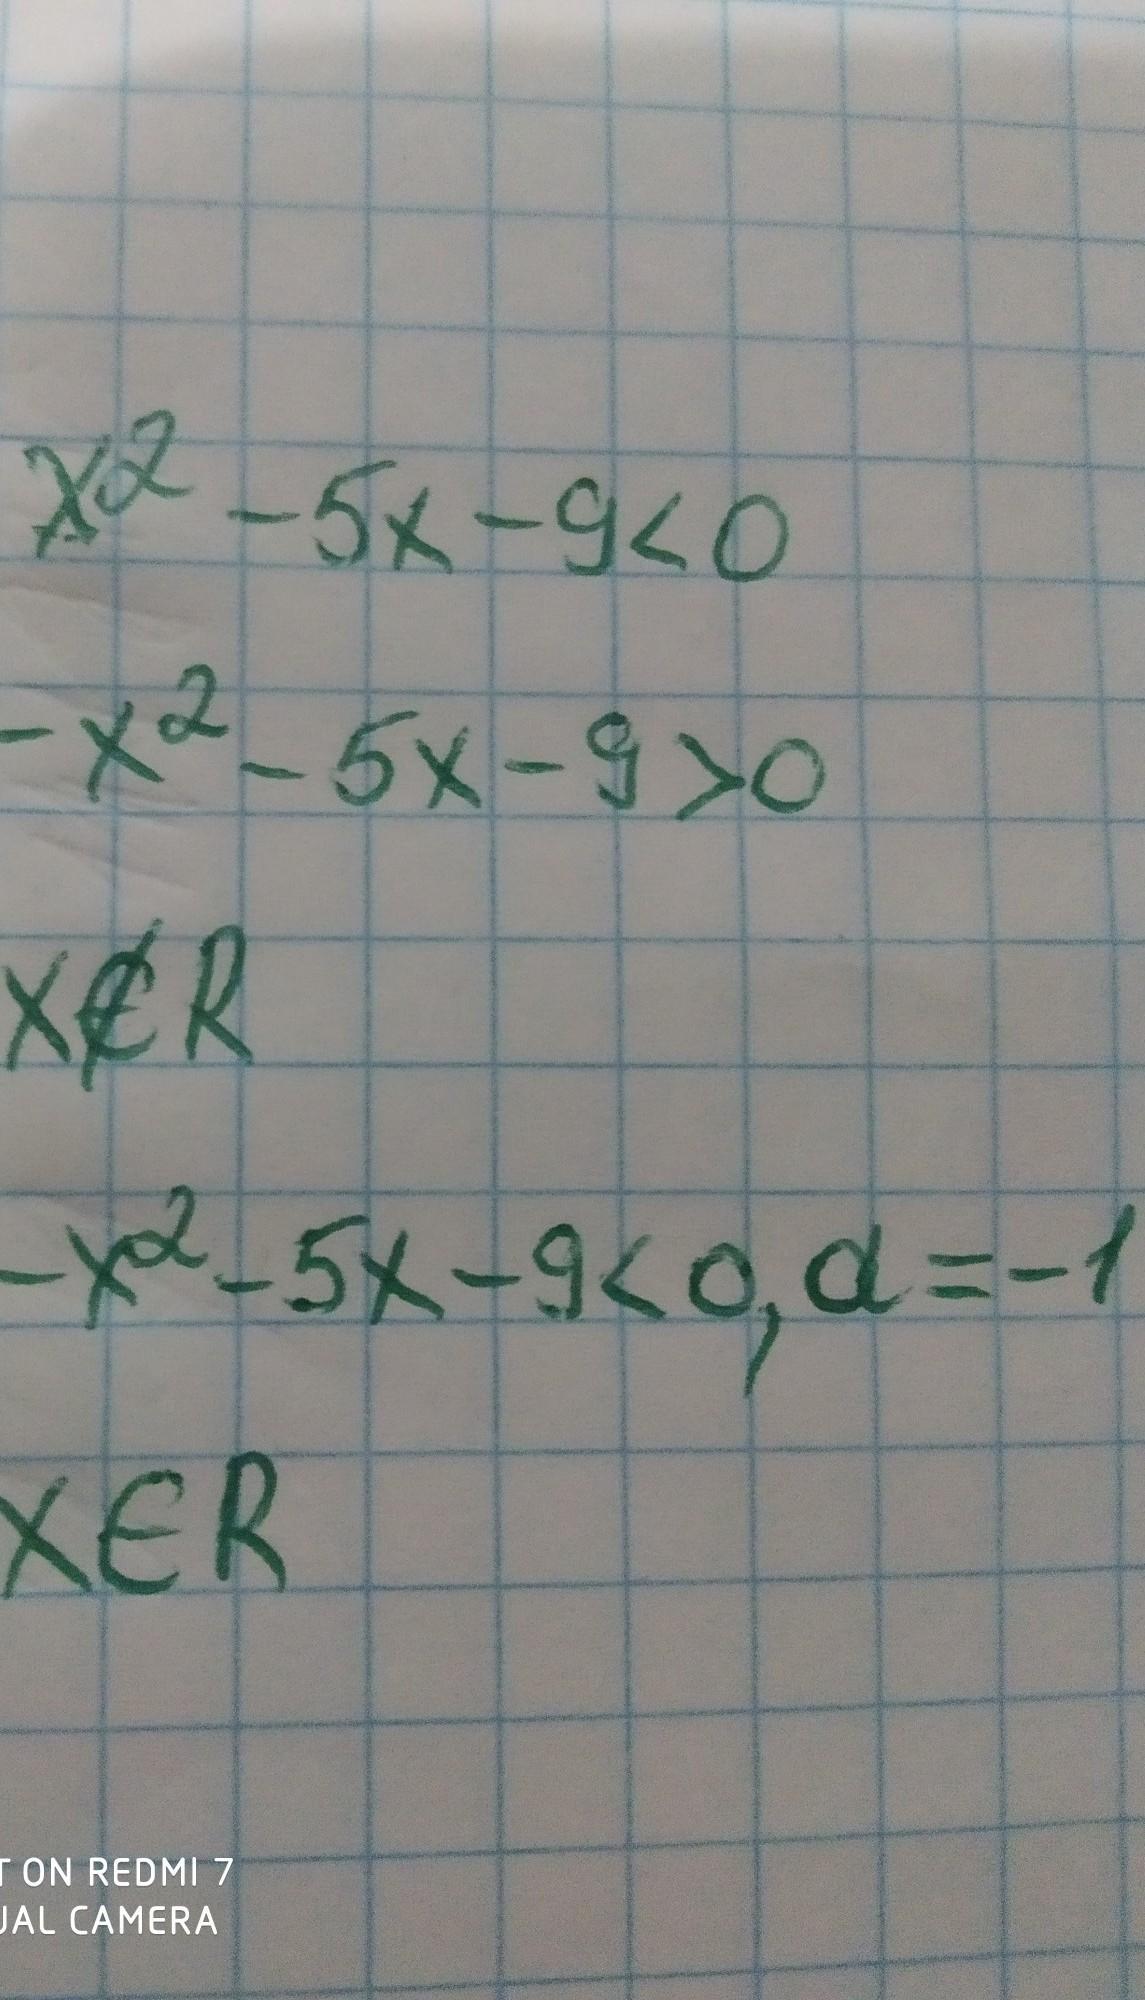 x² - 5x - 9 < 0
- x² - 5x - 9 > 0
x ∉ R
- x² - 5x - 9 < 0, a = - 1
x ∈ R
T ON REDMI 7
UAL CAMERA